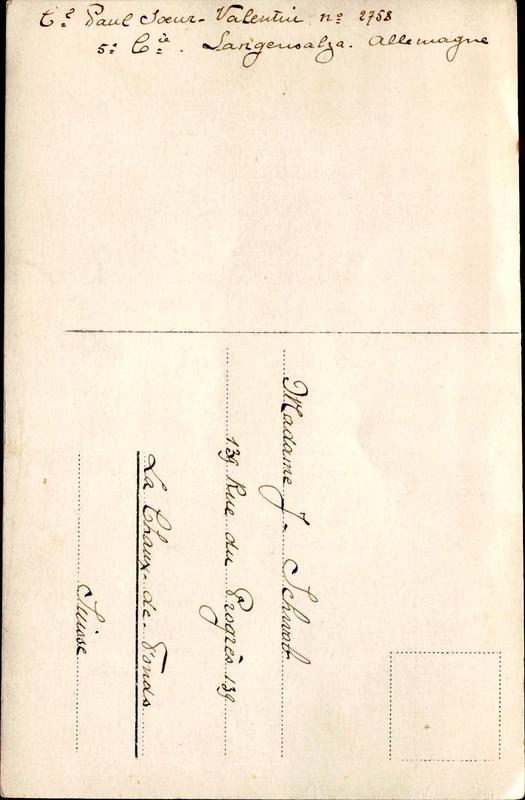 Cˡ Paul Sœur-Valentin nº 2758
5ᵉ Cⁱᵉ. Langensalza. Allemagne
Madame J. Schwob
139 Rue du Progrès 139
La Chaux-de-Fonds
Suisse